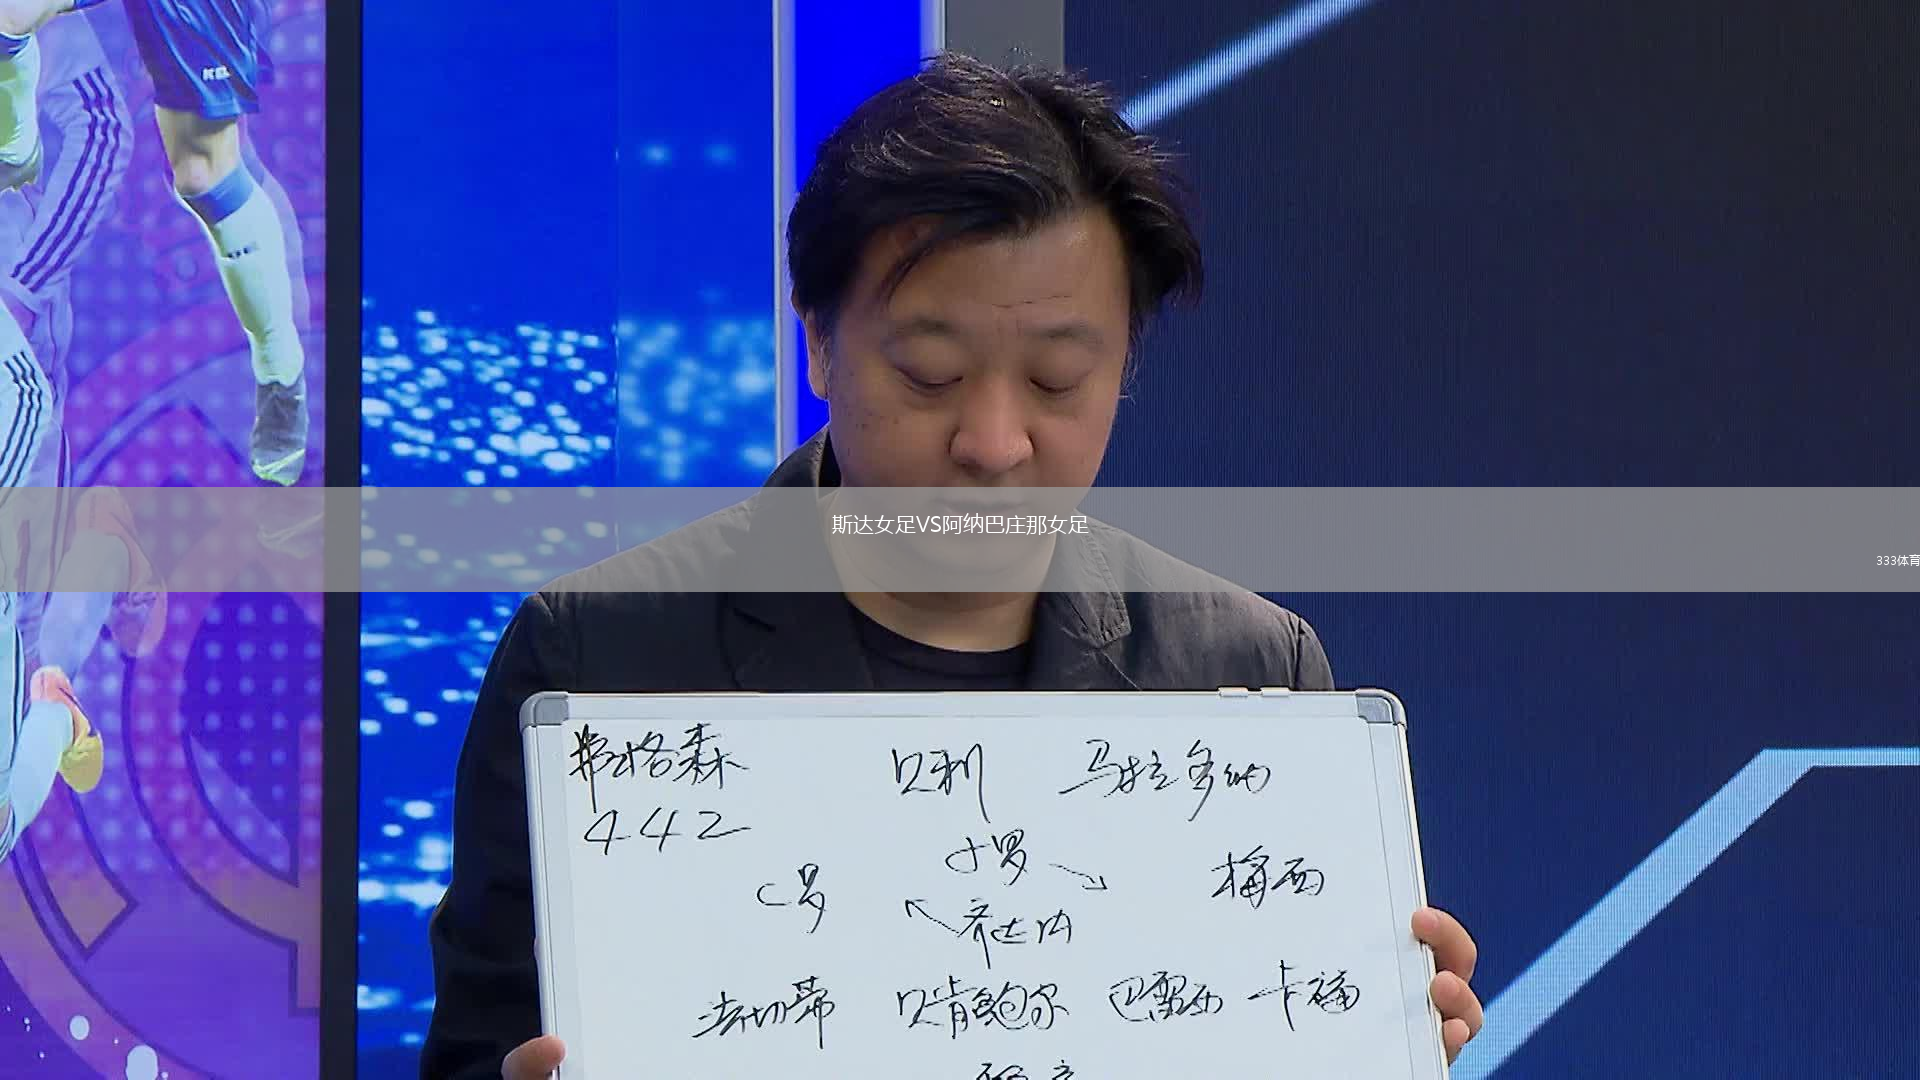 KEL
斯达女足VS阿纳巴庄那女足
333体育
弗格森 贝利 马拉多纳
442
小罗
C罗 梅西
齐达内
法切蒂 贝肯鲍尔 巴雷西 卡福